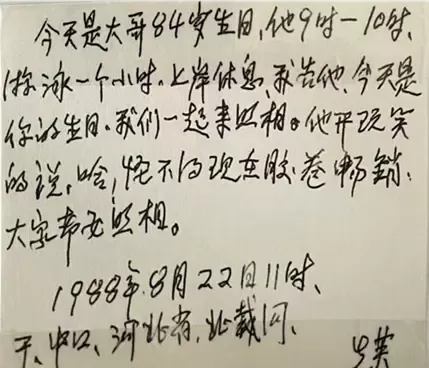 今天是大哥84岁生日,他9时—10时,
游泳一个小时。上岸休息,我告他,今天是
你的生日。我们一起来照相。他开玩笑
的说,哈,怪不得现在胶卷畅銷,
大家都要照相。
1988年8月22日11时、
于、中口、河北省,北戴河、